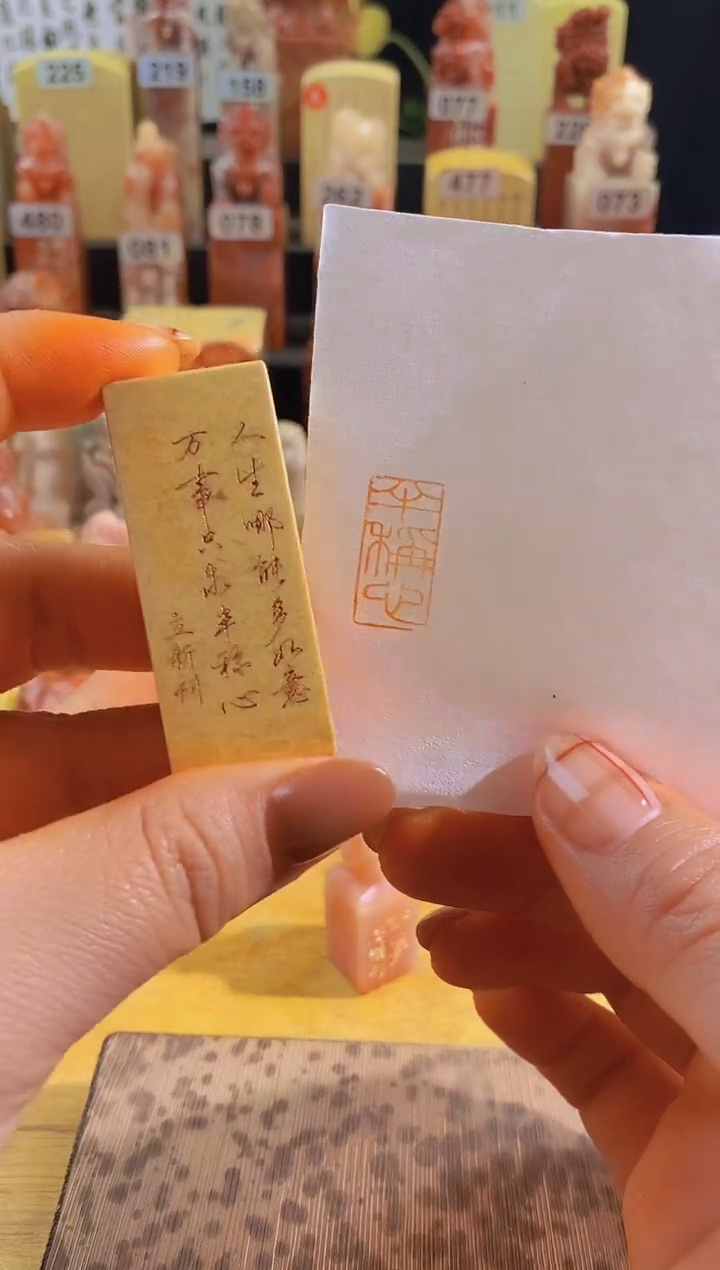 225
219
158
077
480
081
078
262
477
073
人生哪能多如意
万事只求半称心
立新刊
半稱心